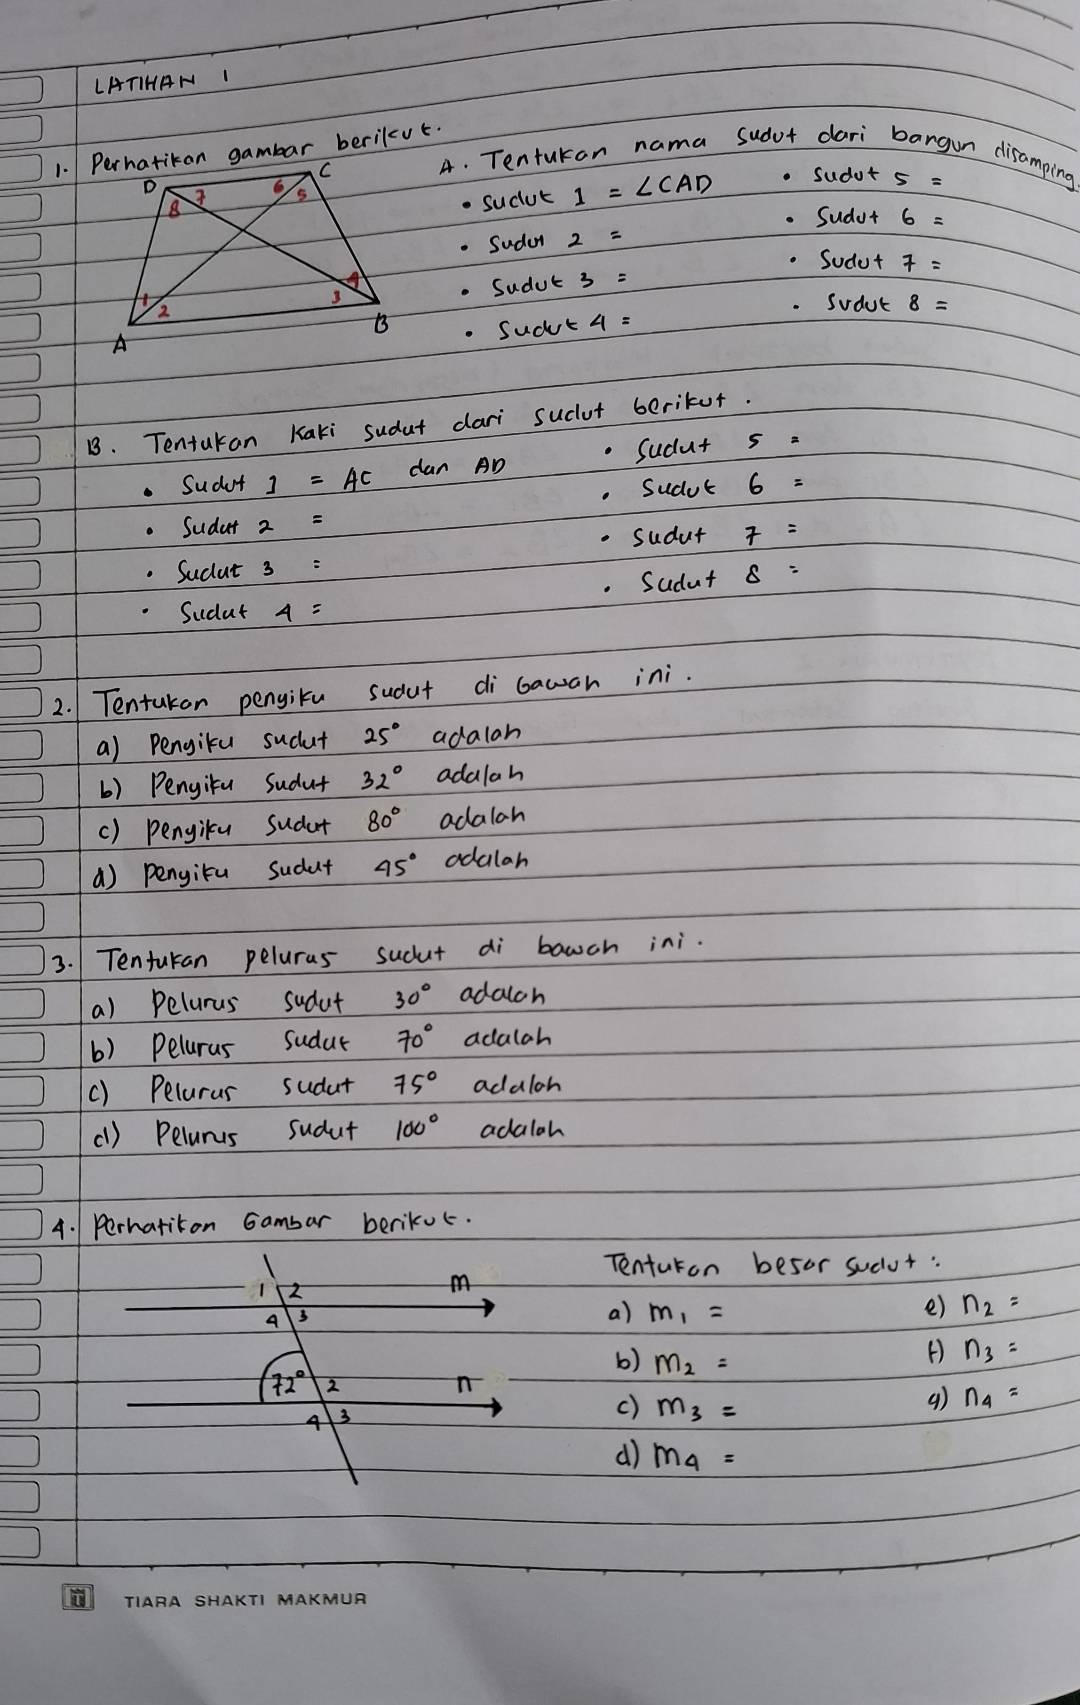 LATIHAN 1
1. Perhatikan gambar berikut.
D 8 7 6 5 C
1 2 3 4
A B
A. Tentukan nama sudut dari bangun disamping.
• sudut 1 = ∠CAD
• Sudut 2 =
• Sudut 3 =
• Sudut 4 =
• Sudut 5 =
• Sudut 6 =
• Sudut 7 =
• Sudut 8 =
B. Tentukan Kaki sudut dari sudut berikut.
• Sudut 1 = AC dan AD
• Sudut 2 =
• Sudut 3 :
• Sudut 4 =
• Sudut 5 =
• Sudut 6 =
• Sudut 7 =
• Sudut 8 =
2. Tentukan penyiku sudut di bawah ini.
a) Penyiku sudut 25° adalah
b) Penyiku Sudut 32° adalah
c) Penyiku Sudut 80° adalah
d) Penyiku Sudut 45° adalah
3. Tentukan pelurus sudut di bawah ini.
a) Pelurus sudut 30° adalah
b) Pelurus Sudut 70° adalah
c) Pelurus sudut 75° adalah
d) Pelurus Sudut 100° adalah
4. Perhatikan Gambar berikut.
1 2 m
4 3
72° 2 n
4 3
Tentukan besar sudut :
a) m₁ =
b) m₂ =
c) m₃ =
d) m₄ =
e) n₂ =
f) n₃ =
g) n₄ =
TIARA SHAKTI MAKMUR